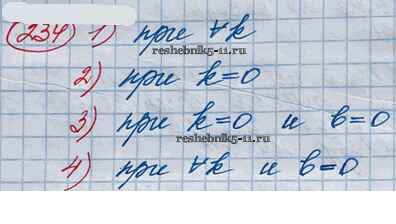 (234) 1) при ∀k
reshebnik5-11.ru
2) при k=0
3) при k=0 и b=0
reshebnik5-11.ru
4) при ∀k и b=0